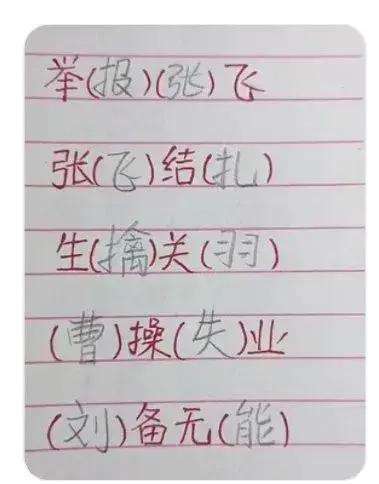 举(报)(张)飞
张(飞)结(扎)
生(擒)关(羽)
(曹)操(失)业
(刘)备无(能)